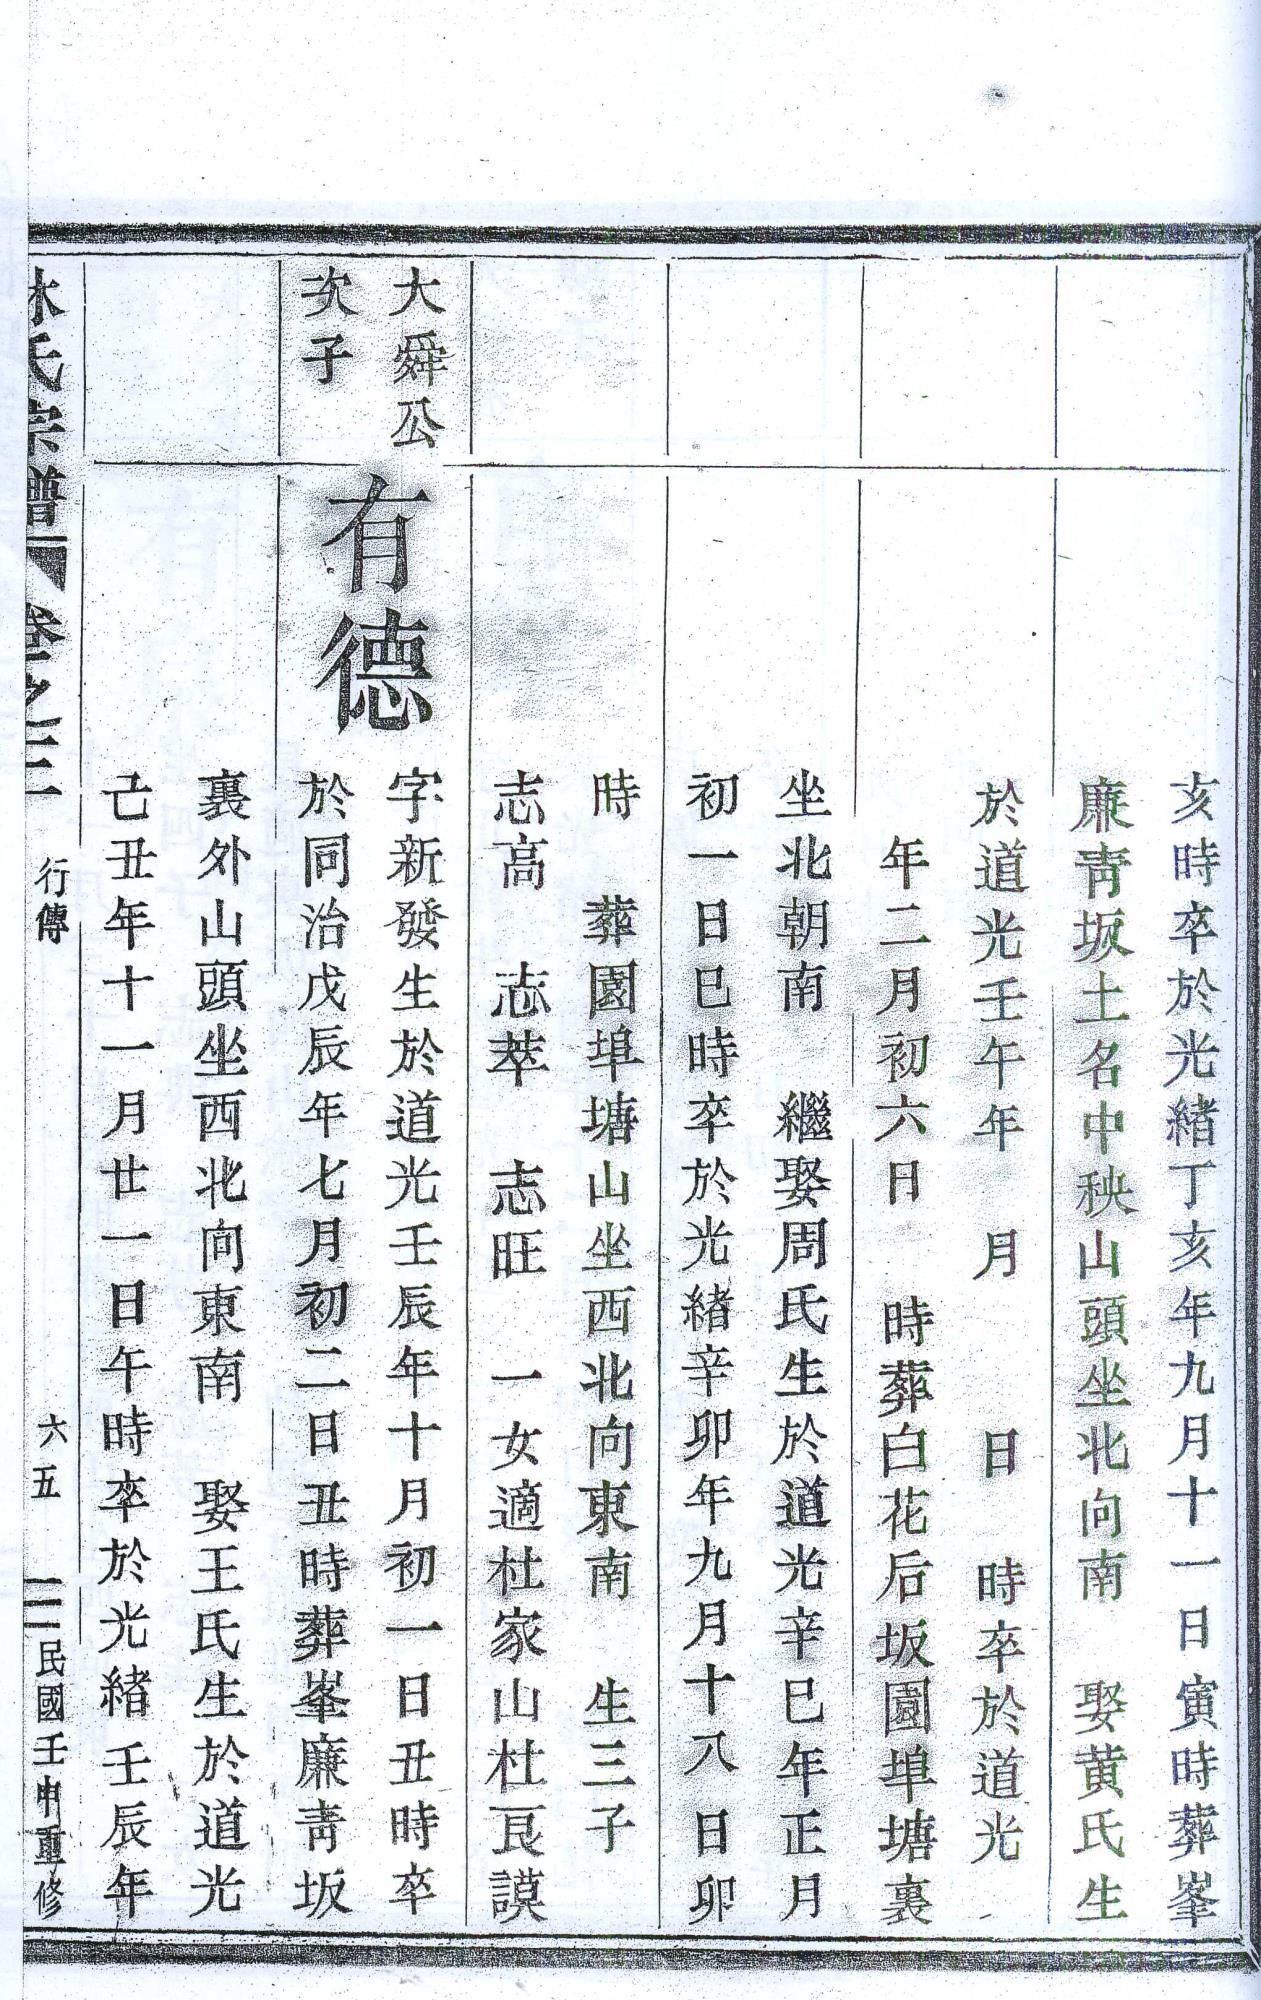 亥時卒於光緒丁亥年九月十一日寅時葬峯
廉靑坂土名中秧山頭坐北向南 娶黄氏生
於道光壬午年 月 日 時卒於道光
年二月初六日 時葬白花后坂園埠塘裏
坐北朝南 繼娶周氏生於道光辛巳年正月
初一日巳時卒於光緒辛卯年九月十八日卯
時 葬園埠塘山坐西北向東南 生三子
志高 志萃 志旺 一女適杜家山杜艮謨
大舜公
次子
有德
字新發生於道光壬辰年十月初一日丑時卒
於同治戊辰年七月初二日丑時葬峯廉靑坂
裏外山頭坐西北向東南 娶王氏生於道光
己丑年十一月廿一日午時卒於光緒壬辰年
林氏宗譜 卷之三 行傳 六五 民國壬申重修